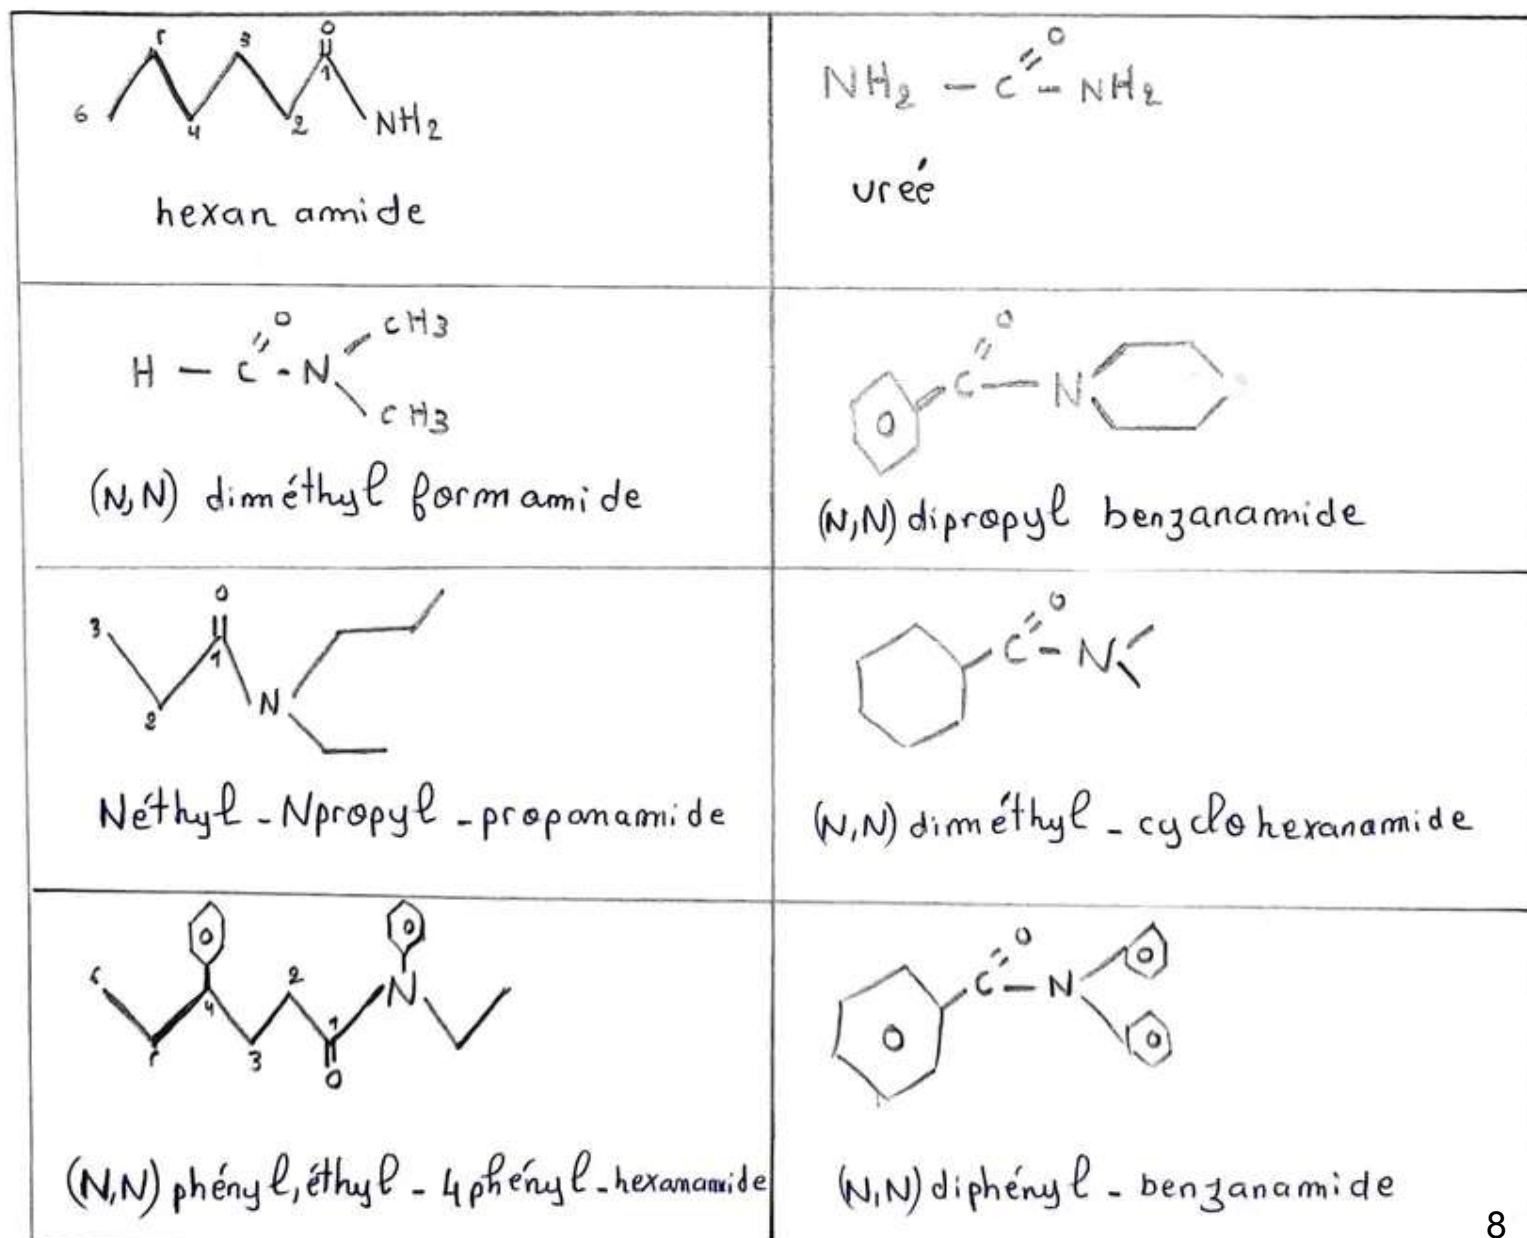 O
6 5 4 3 2 1 NH2
hexan amide
O
NH2 - C - NH2
ureé
O
H - C - N
CH3
CH3
(N,N) diméthyl formamide
O
O C - N
(N,N) dipropyl benzanamide
O
3 2 1 N
Néthyl - Npropyl - propanamide
O
C - N
(N,N) diméthyl - cyclohexanamide
O O
6 5 4 3 2 1 N
O
(N,N) phényl, éthyl - 4phényl - hexanamide
O
O C - N O
O
(N,N) diphényl - benzanamide
8